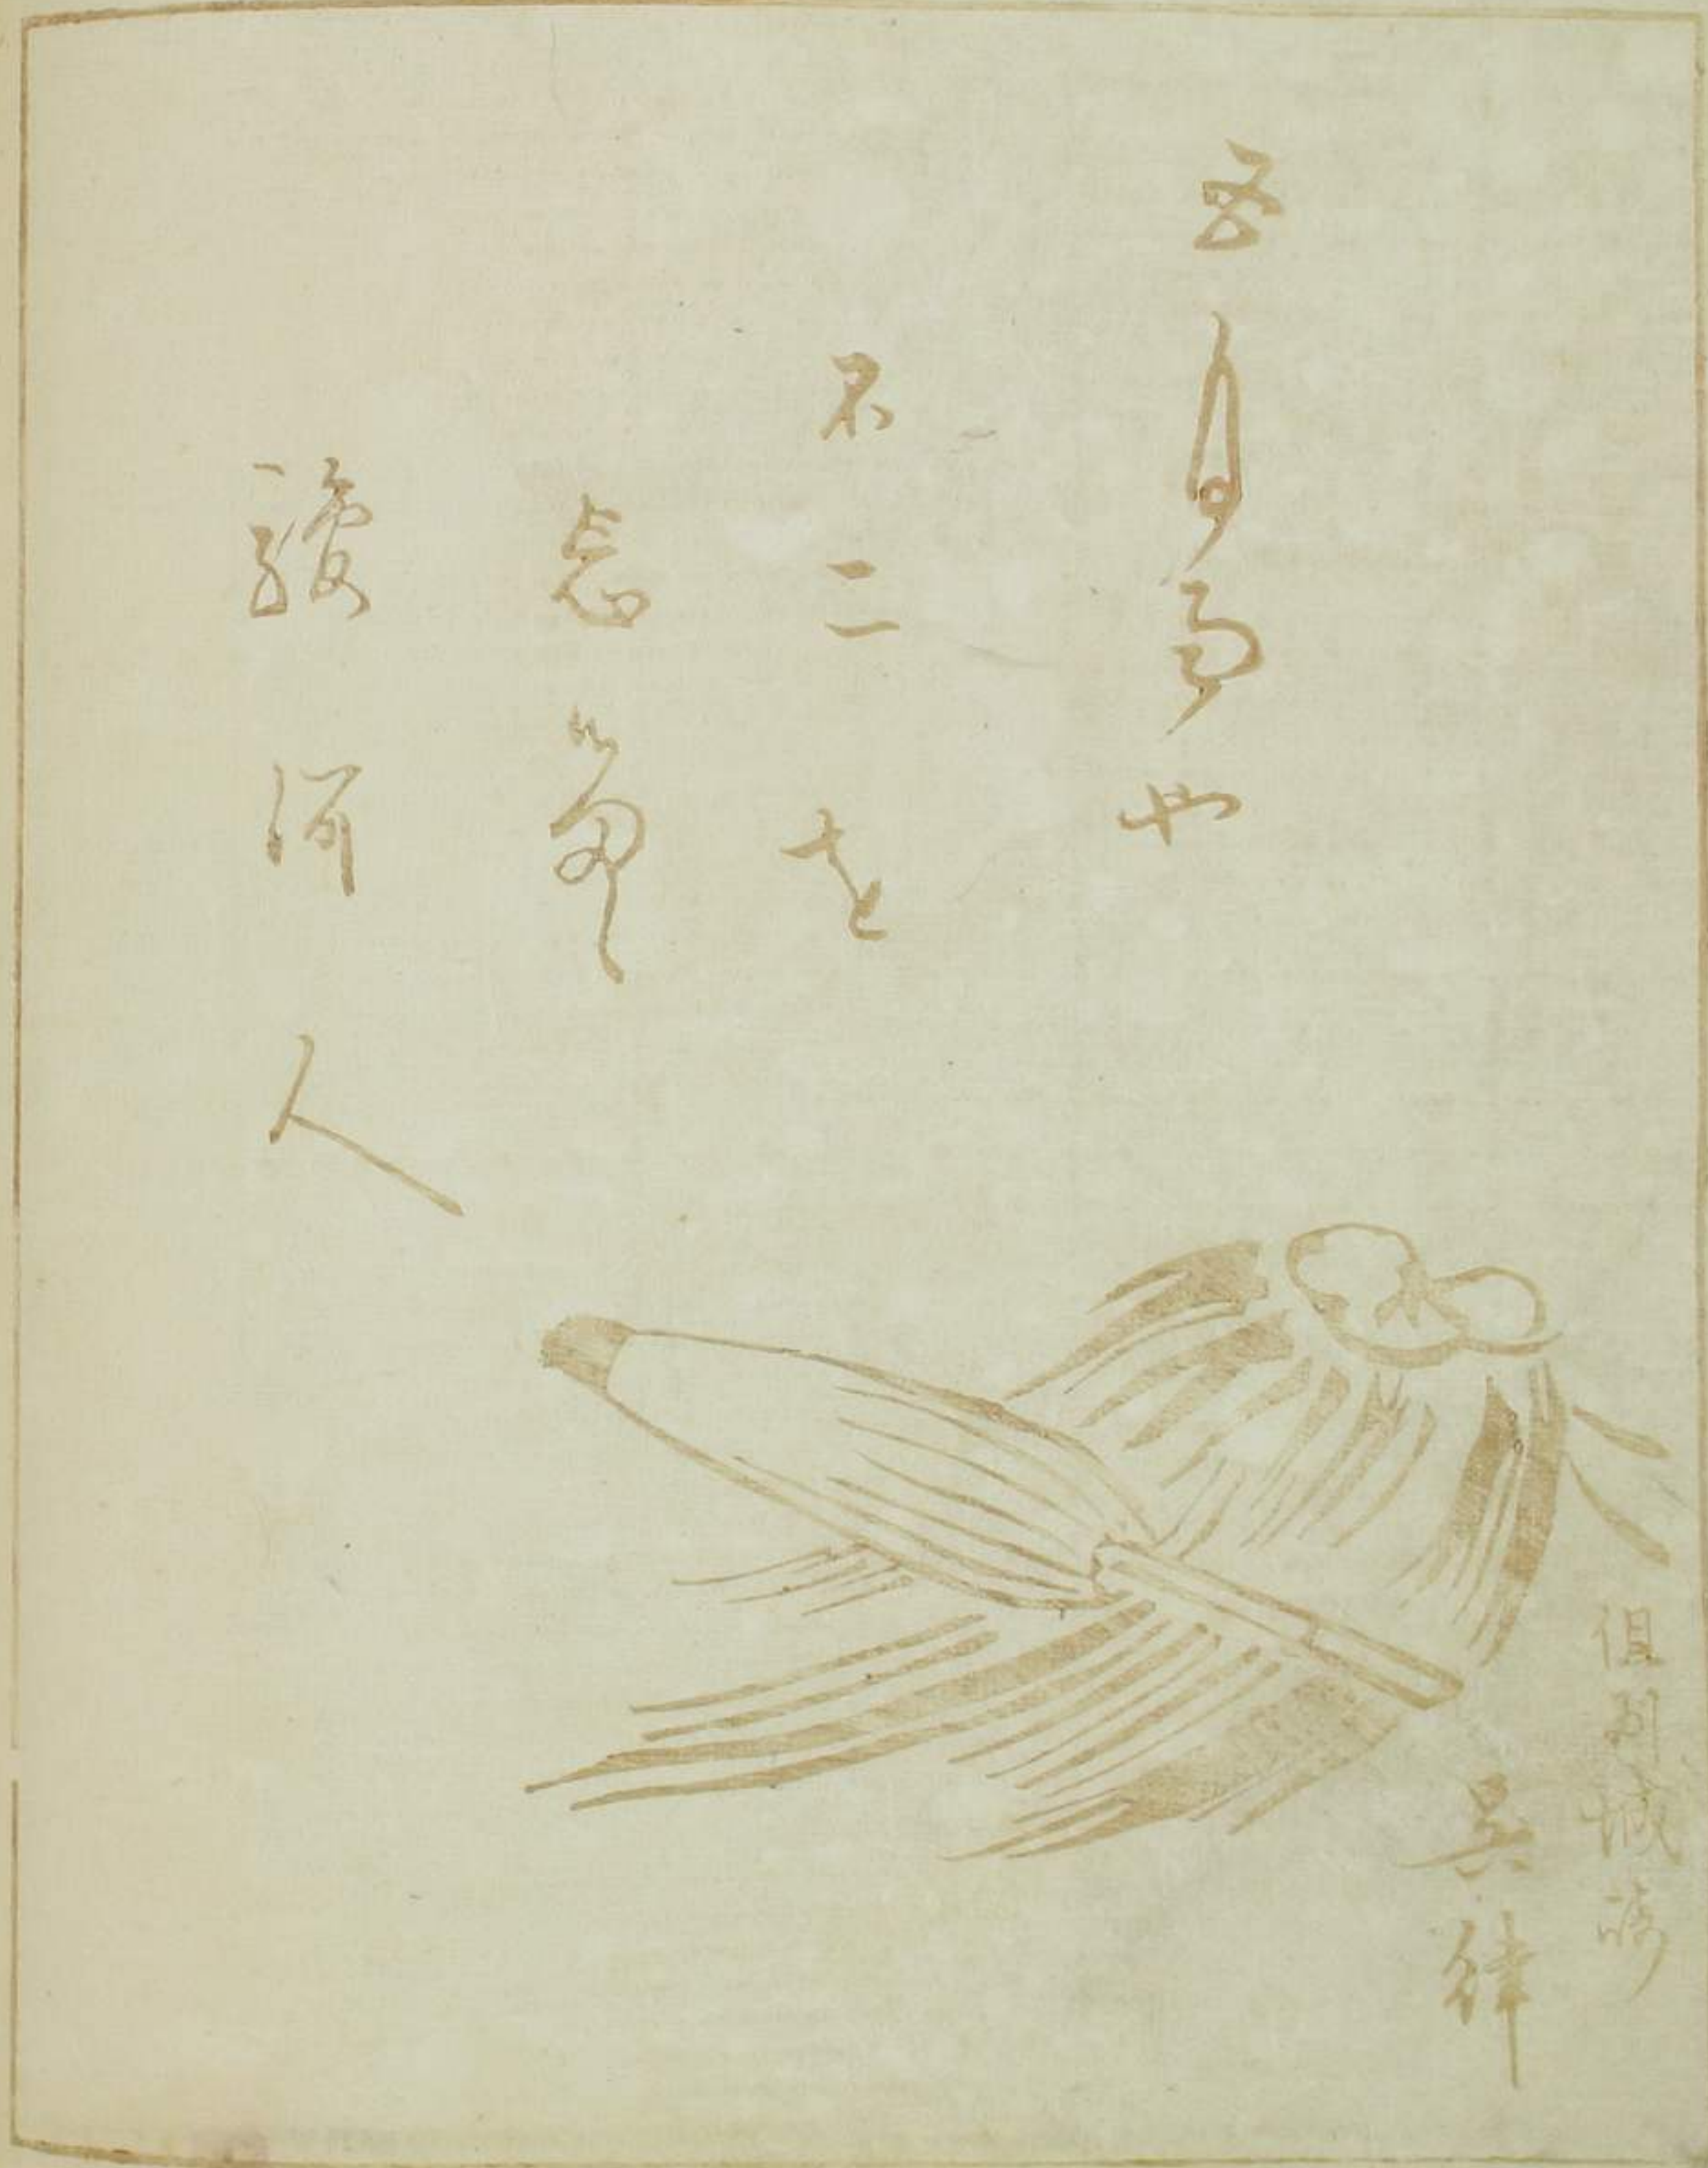 五月雨や
不二を
忘るゝ
駿河人
但列城崎
呉律